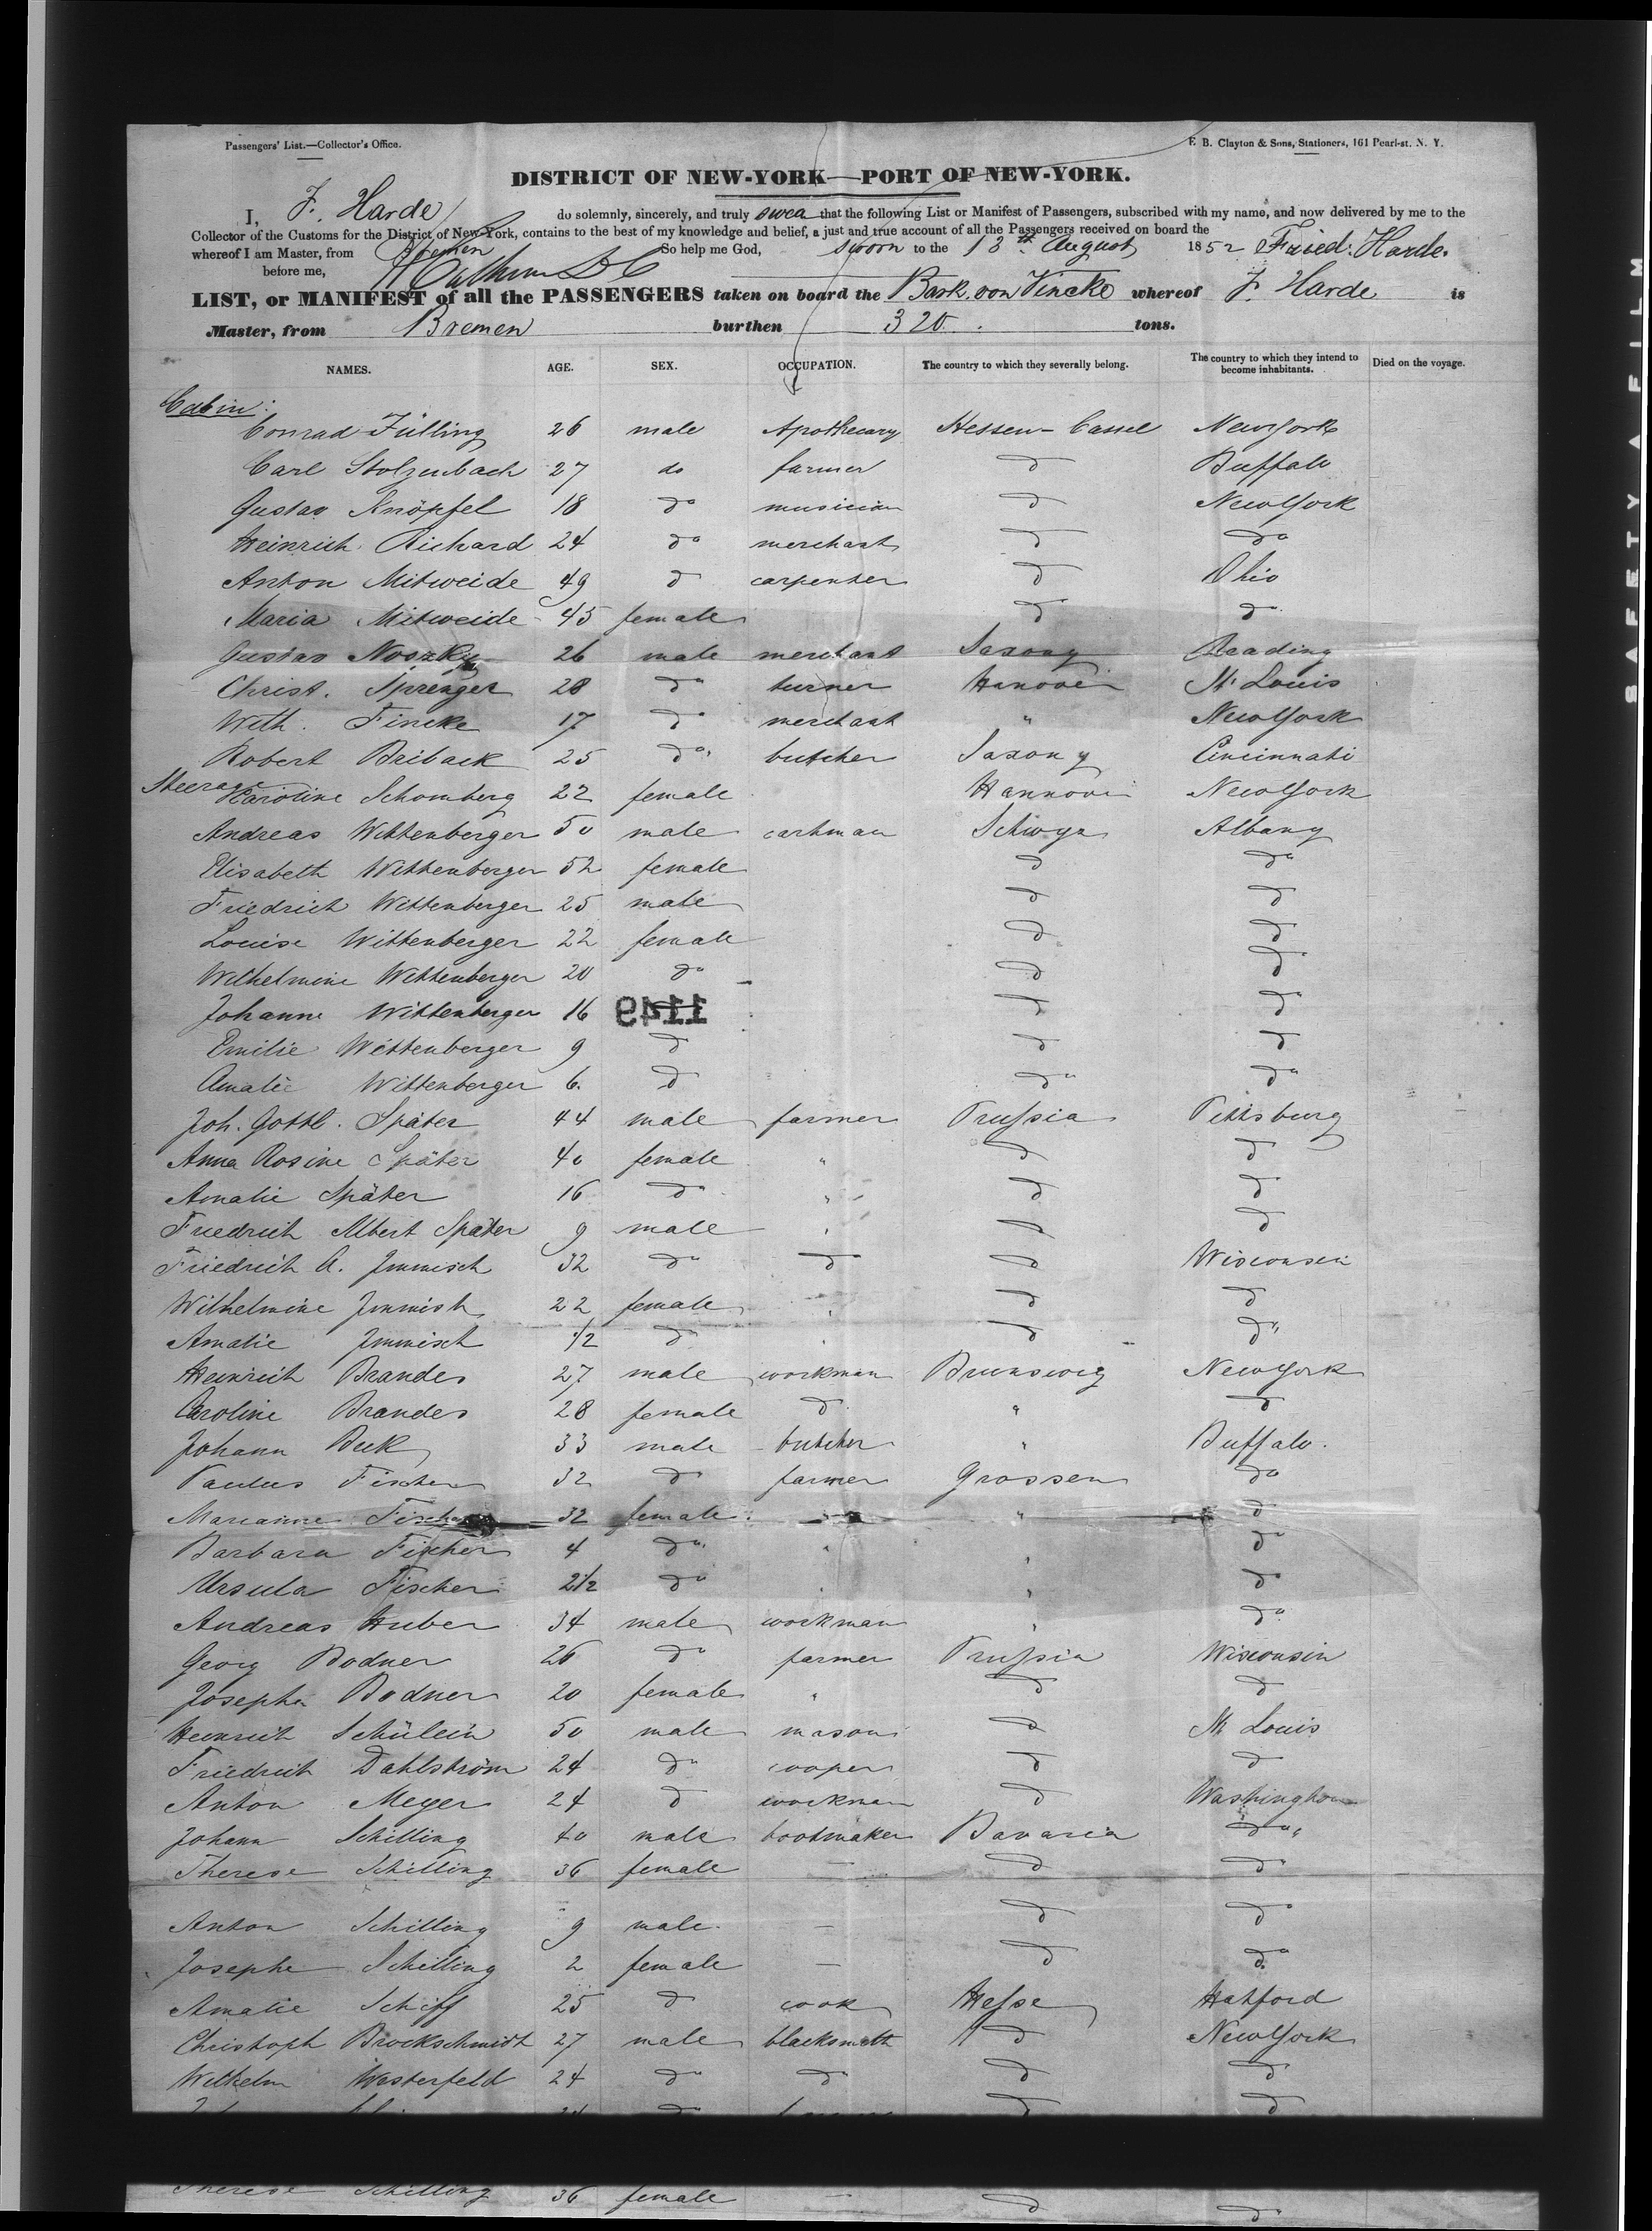 Passengers' List.—Collector's Office.
F. B. Clayton & Sons, Stationers, 161 Pearl-st. N. Y.
DISTRICT OF NEW-YORK—PORT OF NEW-YORK.
I, F. Harde do solemnly, sincerely, and truly swear that the following List or Manifest of Passengers, subscribed with my name, and now delivered by me to the
Collector of the Customs for the District of New-York, contains to the best of my knowledge and belief, a just and true account of all the Passengers received on board the
whereof I am Master, from Bremen So help me God, sworn to the 13th August 1852 Fried. Harde.
before me,
LIST, or MANIFEST of all the PASSENGERS taken on board the Bark von Vincke whereof F. Harde is
Master, from Bremen burthen 320. tons.
NAMES. AGE. SEX. OCCUPATION. The country to which they severally belong. The country to which they intend to become inhabitants. Died on the voyage.
Cabin:
Conrad Fülling 26 male Apothecary Hessen-Cassel NewYork
Carl Stolzenbach 27 do farmer d Buffalo
Gustav Knöpfel 18 do musician d NewYork
Heinrich Richard 24 do merchant d do
Anton Mitweide 49 d carpenter d Ohio
Maria Mitweide 45 female d do
Gustav 26 male merchant Saxony Reading
Christ. Sprenger 28 do turner Hanover St. Louis
Wilh. Fincke 17 do merchant " NewYork
Robert Briback 25 do butcher Saxony Cincinnati
Steerage Karoline Schomberg 22 female Hannover NewYork
Andreas Wittenberger 50 male cartman Albany
Elisabeth Wittenberger 52 female d do
Friedrich Wittenberger 25 male d d
Louise Wittenberger 22 female d d
Wilhelmine Wittenberger 20 do d d
Johanne Wittenberger 16 1149 d do
Emilie Wittenberger 9 d d d
Amalie Wittenberger 6. d do do
Joh. Gottl. Später 44 male farmer Prussia Pittsburg
Anna Rosine Später 40 female " d d
Amalie Später 16 do " d d
Friedrich Albert Später 9 male " d d
Friedrich A. Immisch 32 do d d Wisconsin
Wilhelmine Immisch 22 female " d d
Amalie Immisch 1/2 d " d do
Heinrich Brandes 27 male workman Brunswig NewYork
Caroline Brandes 28 female d " d
Johann Buk 33 male butcher " Buffalo.
Paulus Fischer 32 d farmer Grossen do
Marianne Fischer 32 female " " d
Barbara Fischer 4 do " " do
Ursula Fischer 2 1/2 do " " do
Andreas Huber 34 male workman " do
Georg Bodner 26 do farmer Prussia Wisconsin
Josepha Bodner 20 female " d d
Heinrich Schülein 50 male mason d St. Louis
Friedrich Dahlström 24 do cooper d d
Anton Meyer 24 d workman d Washington
Johann Schilling 40 male bootmaker Bavaria do
Therese Schilling 36 female — d do
Anton Schilling 9 male — d do
Josephe Schilling 2 female — d do
Amalie Schiff 25 d cook Hesse Hatford
Christoph Brockschmidt 27 male blacksmith d NewYork
Wilhelm Westerfeld 24 do do d d
Therese Schilling 36 female — d do
SAFETY A FILM